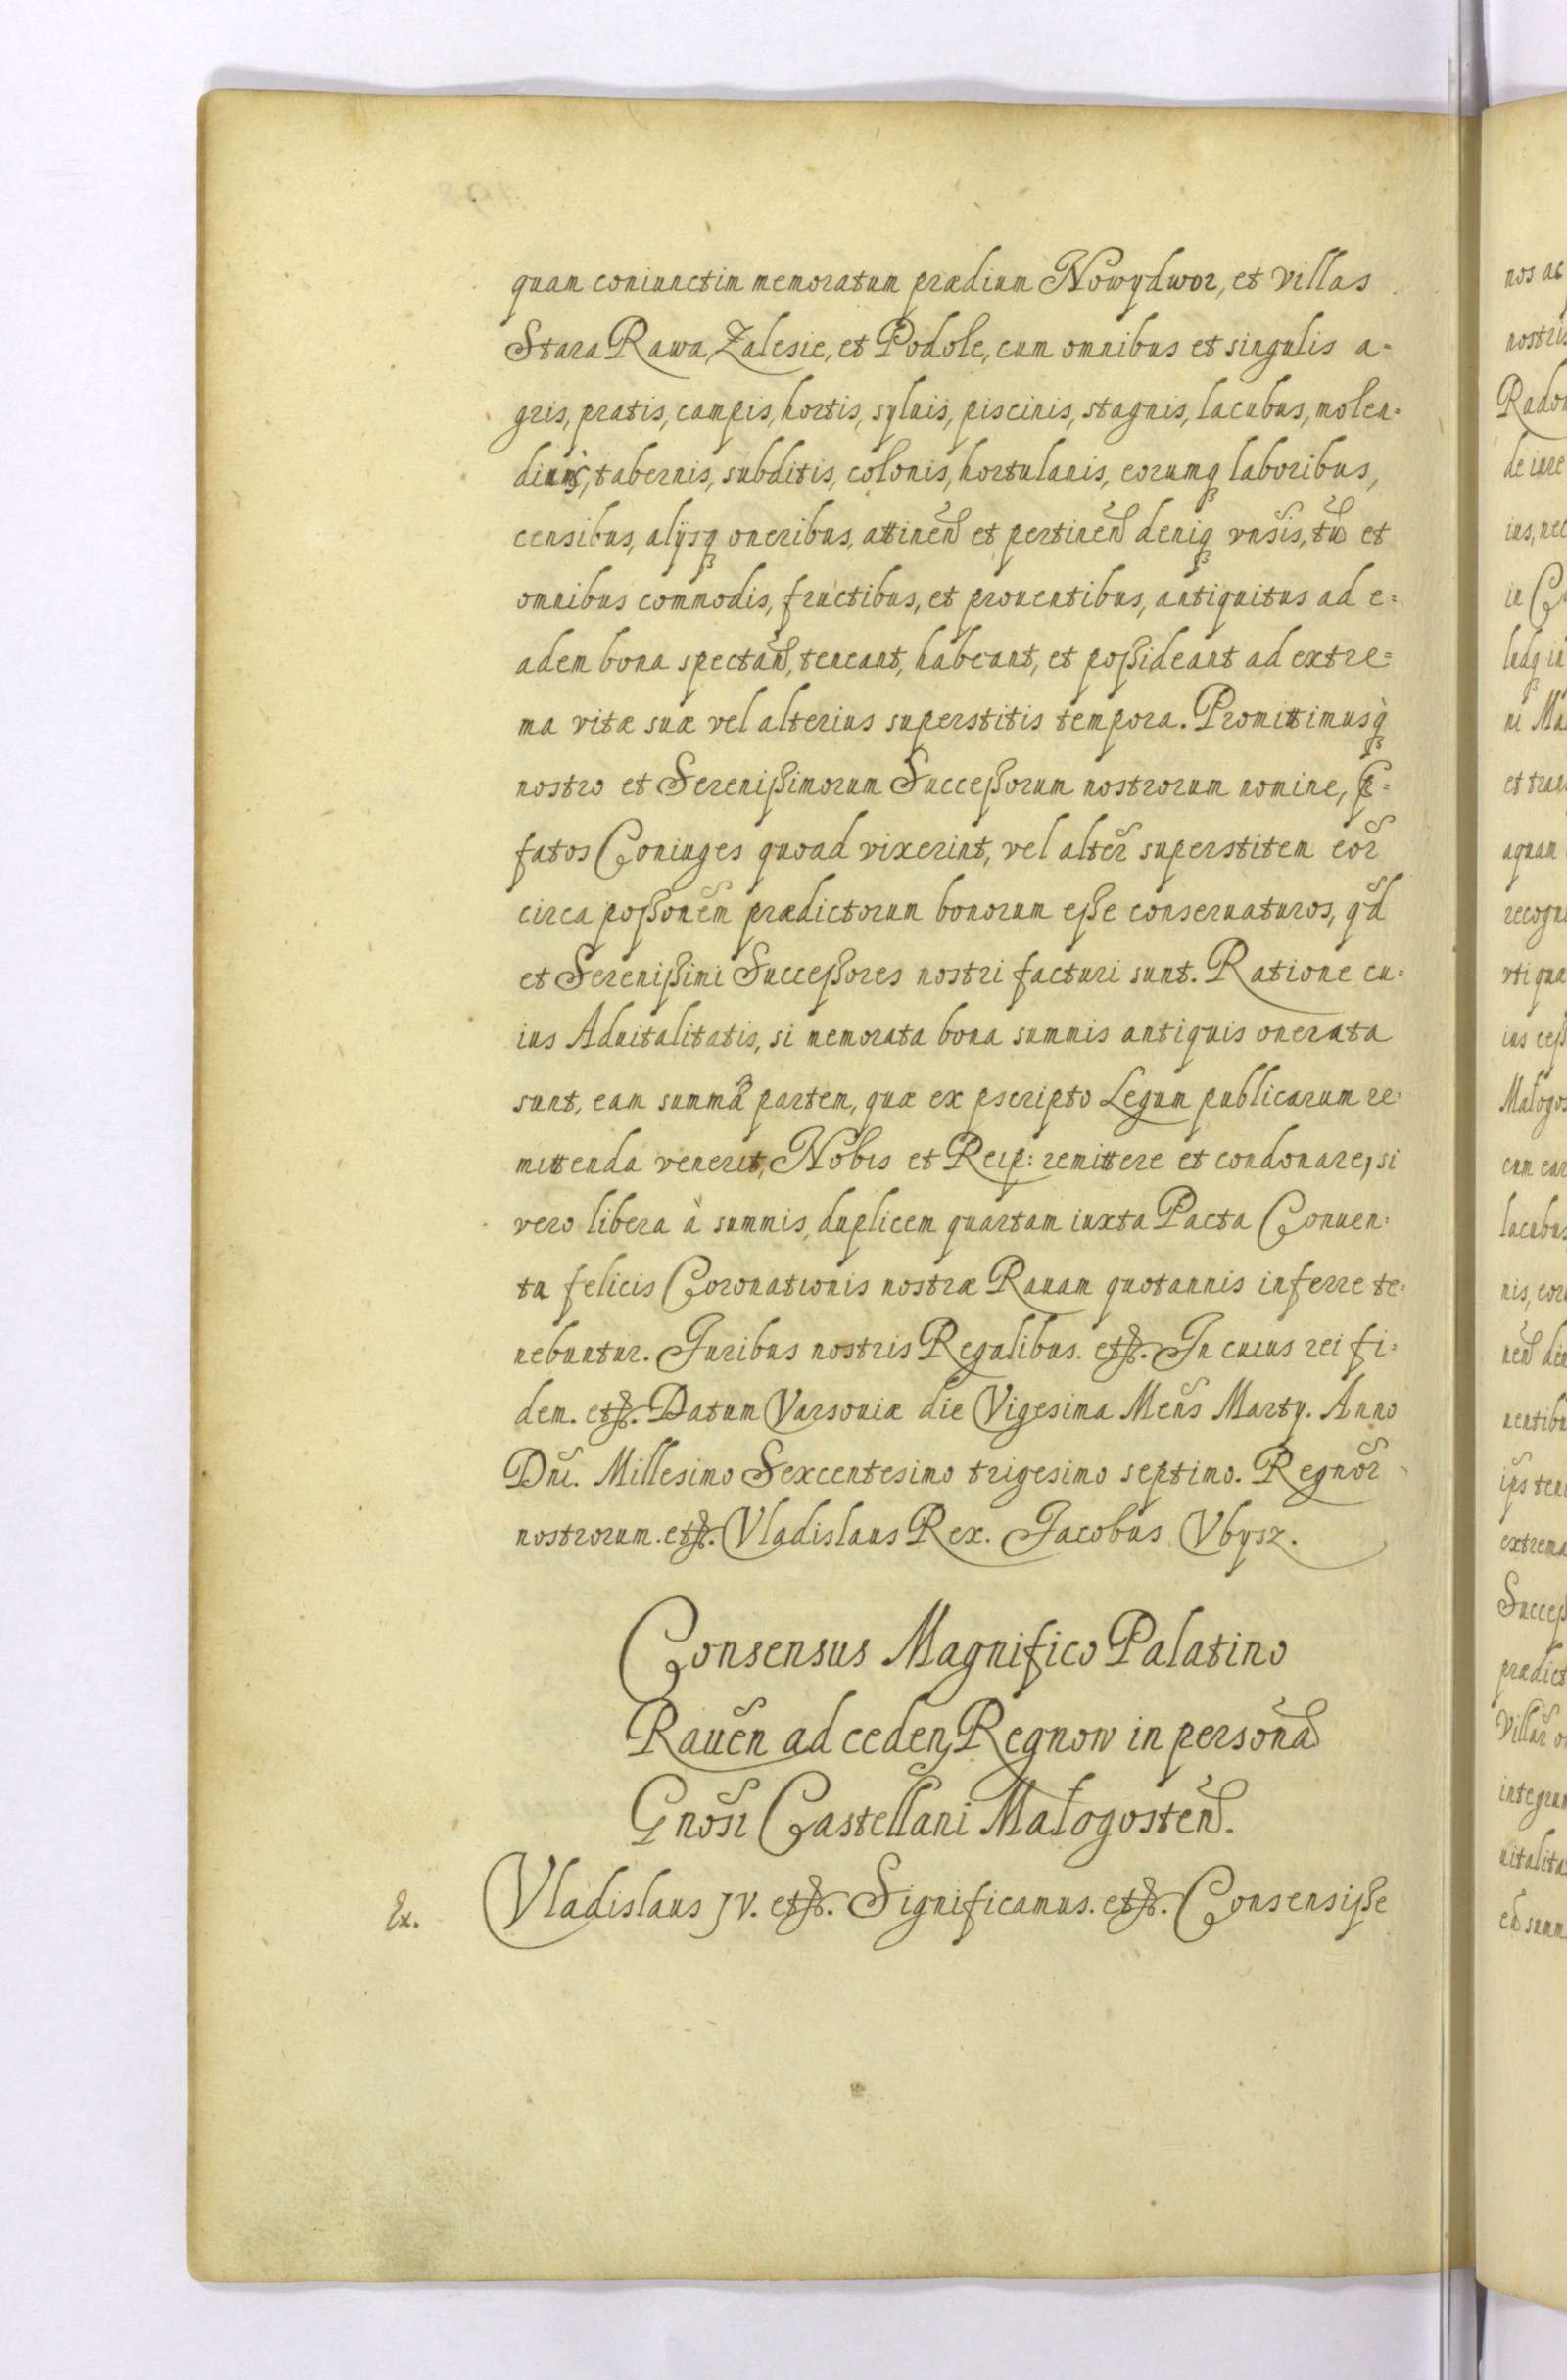 quam coniunctim memoratum prædium Nowydwor, et villas
Stara Rawa, Zalesie, et Podole, cum omnibus et singulis a=
gris, pratis, campis, hortis, syluis, piscinis, stagnis, lacubus, molen=
dinis, tabernis, subditis, colonis, hortulanis, eorumq laboribus,
censibus, alijsq oneribus, attinen et pertinen deniq vnsis, tū et
omnibus commodis, fructibus, et prouentibus, antiquitus ad e=
adem bona spectan, teneant, habeant, et possideant ad extre=
ma vitæ suæ vel alterius superstitis tempora. Promittimusq
nostro et Serenissimorum Successorum nostrorum nomine, p=
fatos Coniuges quoad vixerint, vel alter superstitem eor
circa possonem prædictorum bonorum esse conseruaturos, qd
et Serenissimi Successores nostri facturi sunt. Ratione cu=
ius Aduitalitatis, si memorata bona summis antiquis onerata
sunt, eam summæ partem, quæ ex pscripto Legum publicarum re=
mittenda venerit, Nobis et Reip: remittere et condonare, si
vero libera à summis, duplicem quartam iuxta Pacta Conuen=
ta felicis Coronationis nostræ Rauam quotannis inferre te=
nebuntur. Juribus nostris Regalibus. etc. In cuius rei fi=
dem. etc. Datum Varsouiæ die Vigesima Mens Martij. Anno
Dni. Millesimo Sexcentesimo trigesimo septimo. Regnor
nostrorum. etc. Vladislaus Rex. Jacobus Vbysz.
Consensus Magnifico Palatino
Rauen ad ceden Regnow in persona
Gnosi Castellani Małogosten.
Ex. Vladislaus IV. etc. Significamus. etc. Consensisse
nos ac
nostris
de iure
ius, nec
et tra
aquam
vti qua
lacubus
extrema